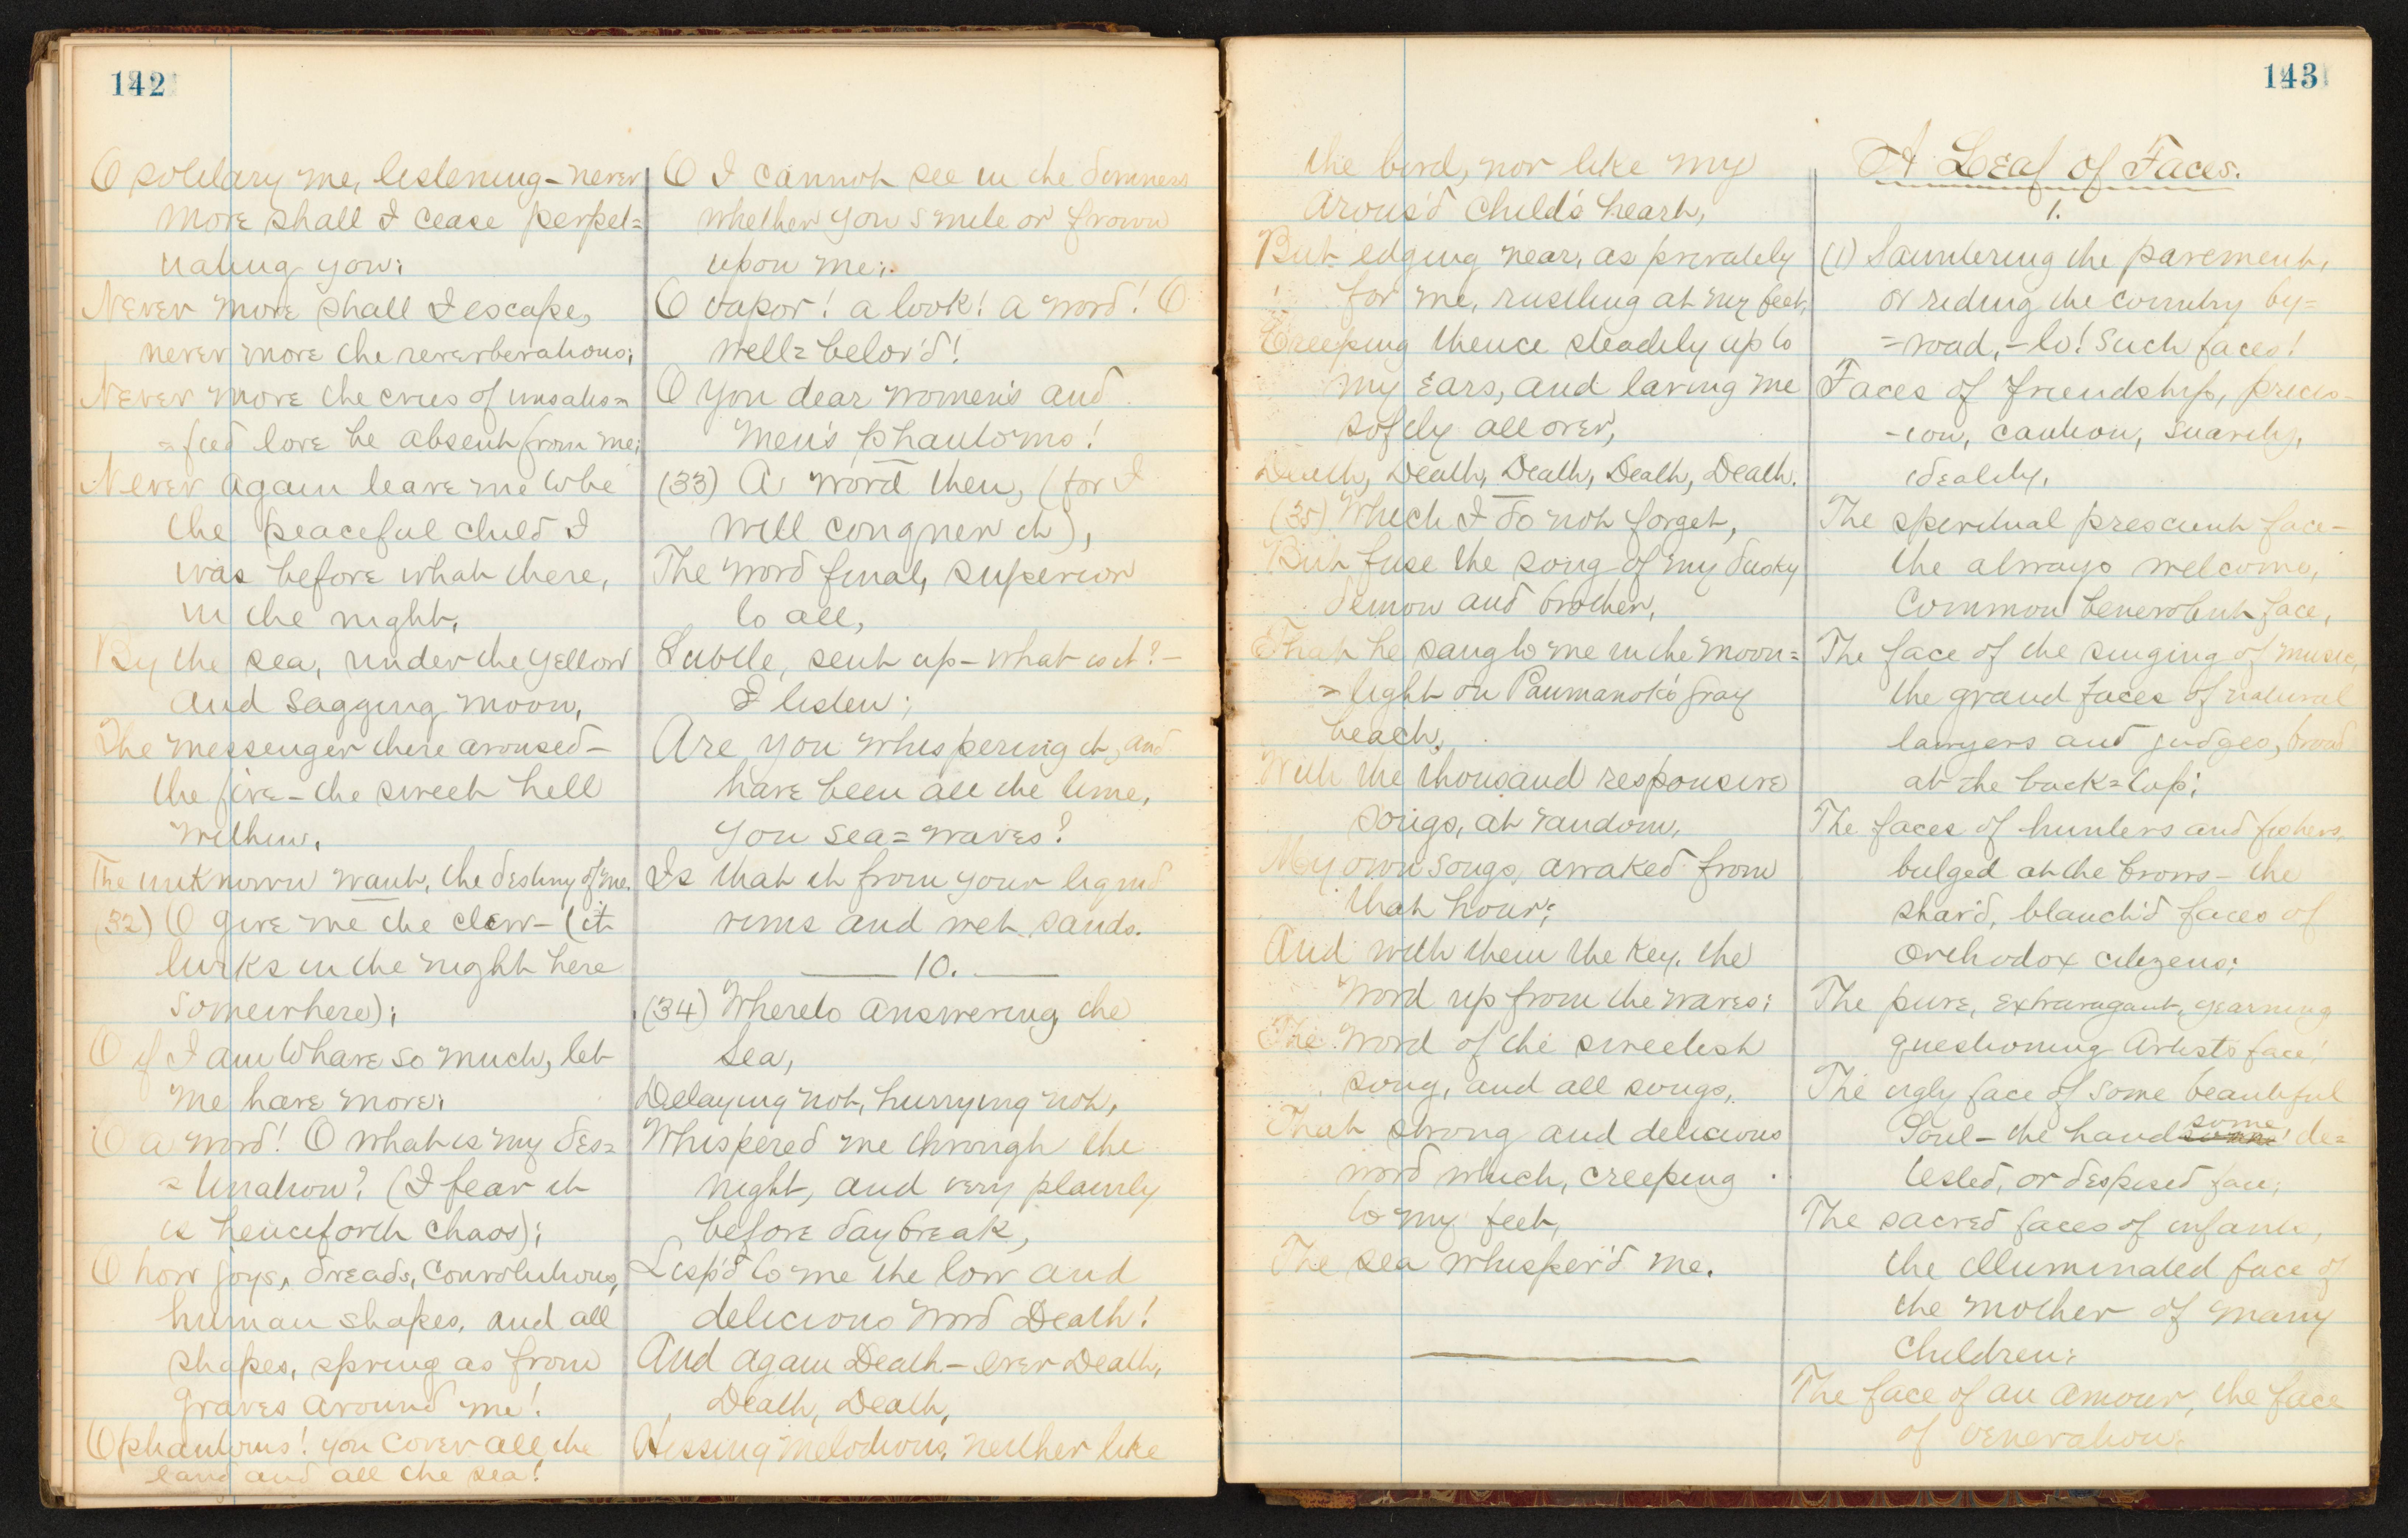 142
O solitary me, listening – never
more shall I cease perpet=
uating you;
Never more shall I escape,
never more the reverberations;
Never more the cries of unsatis=
=fied love be absent from me;
Never again leave me to be
the peaceful child I
was before what there,
in the night,
By the sea, under the yellow
and sagging moon,
The messenger there aroused –
the fire – the sweet hell
within,
The unknown want, the destiny of me.
(32) O give me the clew – (it
lurks in the night here
somewhere);
O if I am to have so much, let
me have more;
O a word! O what is my des=
=tination? (I fear it
is henceforth chaos);
O how joys, dreads, convolutions,
human shapes, and all
shapes, spring as from
graves around me!
O phantoms! you cover all the
land and all the sea!
O I cannot see in the dimness
whether you smile or frown
upon me;
O vapor! a look! a word! O
well=belov'd!
O you dear women's and
men's phantoms!
(33) A word then, (for I
will conquer it),
The word final, superior
to all,
Subtle, sent up – what is it? –
I listen;
Are you whispering it, and
have been all the time,
you sea=waves?
Is that it from your liquid
rims and wet sands.
10.
(34) Whereto answering the
Sea,
Delaying not, hurrying not,
Whispered me through the
night, and very plainly
before daybreak,
Lisp'd to me the low and
delicious word Death!
And again Death – ever Death,
Death, Death,
Hissing melodious, neither like
143
the bird, nor like my
arous'd child's heart,
But edging near, as privately
for me, rustling at my feet,
Creeping thence steadily up to
my ears, and laving me
softly all over,
Death, Death, Death, Death, Death.
(35) Which I do not forget,
But fuse the song of my dusky
demon and brother,
That he sang to me in the moon=
=light on Paumanok's gray
beach,
With the thousand responsive
songs, at random,
My own songs, awaked from
that hour;
And with them the key, the
word up from the waves;
The word of the sweetest
song, and all songs,
That strong and delicious
word which, creeping
to my feet,
The sea whisper'd me.
A Leaf of Faces.
1.
(1) Sauntering the pavement,
or riding the country by=
=road, – lo! such faces!
Faces of friendship, precis–
–ion, caution, suavity,
ideality,
The spiritual prescient face –
the always welcome,
common benevolent face,
The face of the singing of music,
the grand faces of natural
lawyers and judges, broad
at the back=top;
The faces of hunters and fishers,
bulged at the brows – the
shav'd, blanch'd faces of
orthodox citizens;
The pure, extravagant, yearning
questioning Artist's face;
The ugly face of some beautiful
some
Soul – the handsome, de=
tested, or despised face;
The sacred faces of infants,
the illuminated face of
the mother of many
children;
The face of an amour, the face
of veneration;